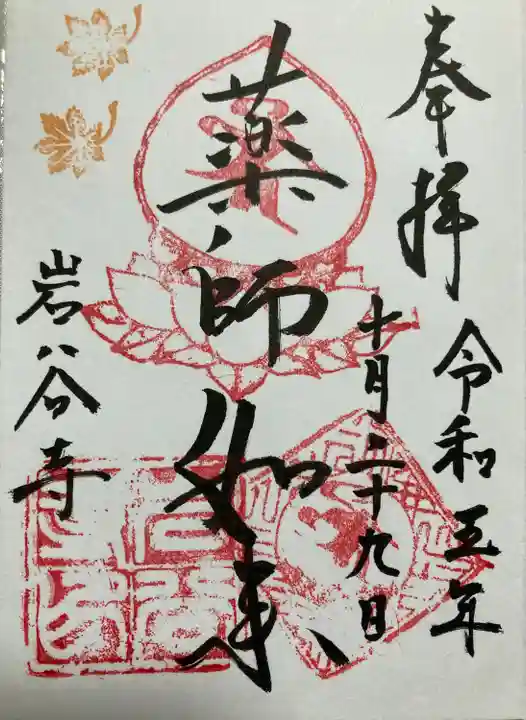 奉拝 令和五年
十月二十九日
薬師如来
岩谷寺